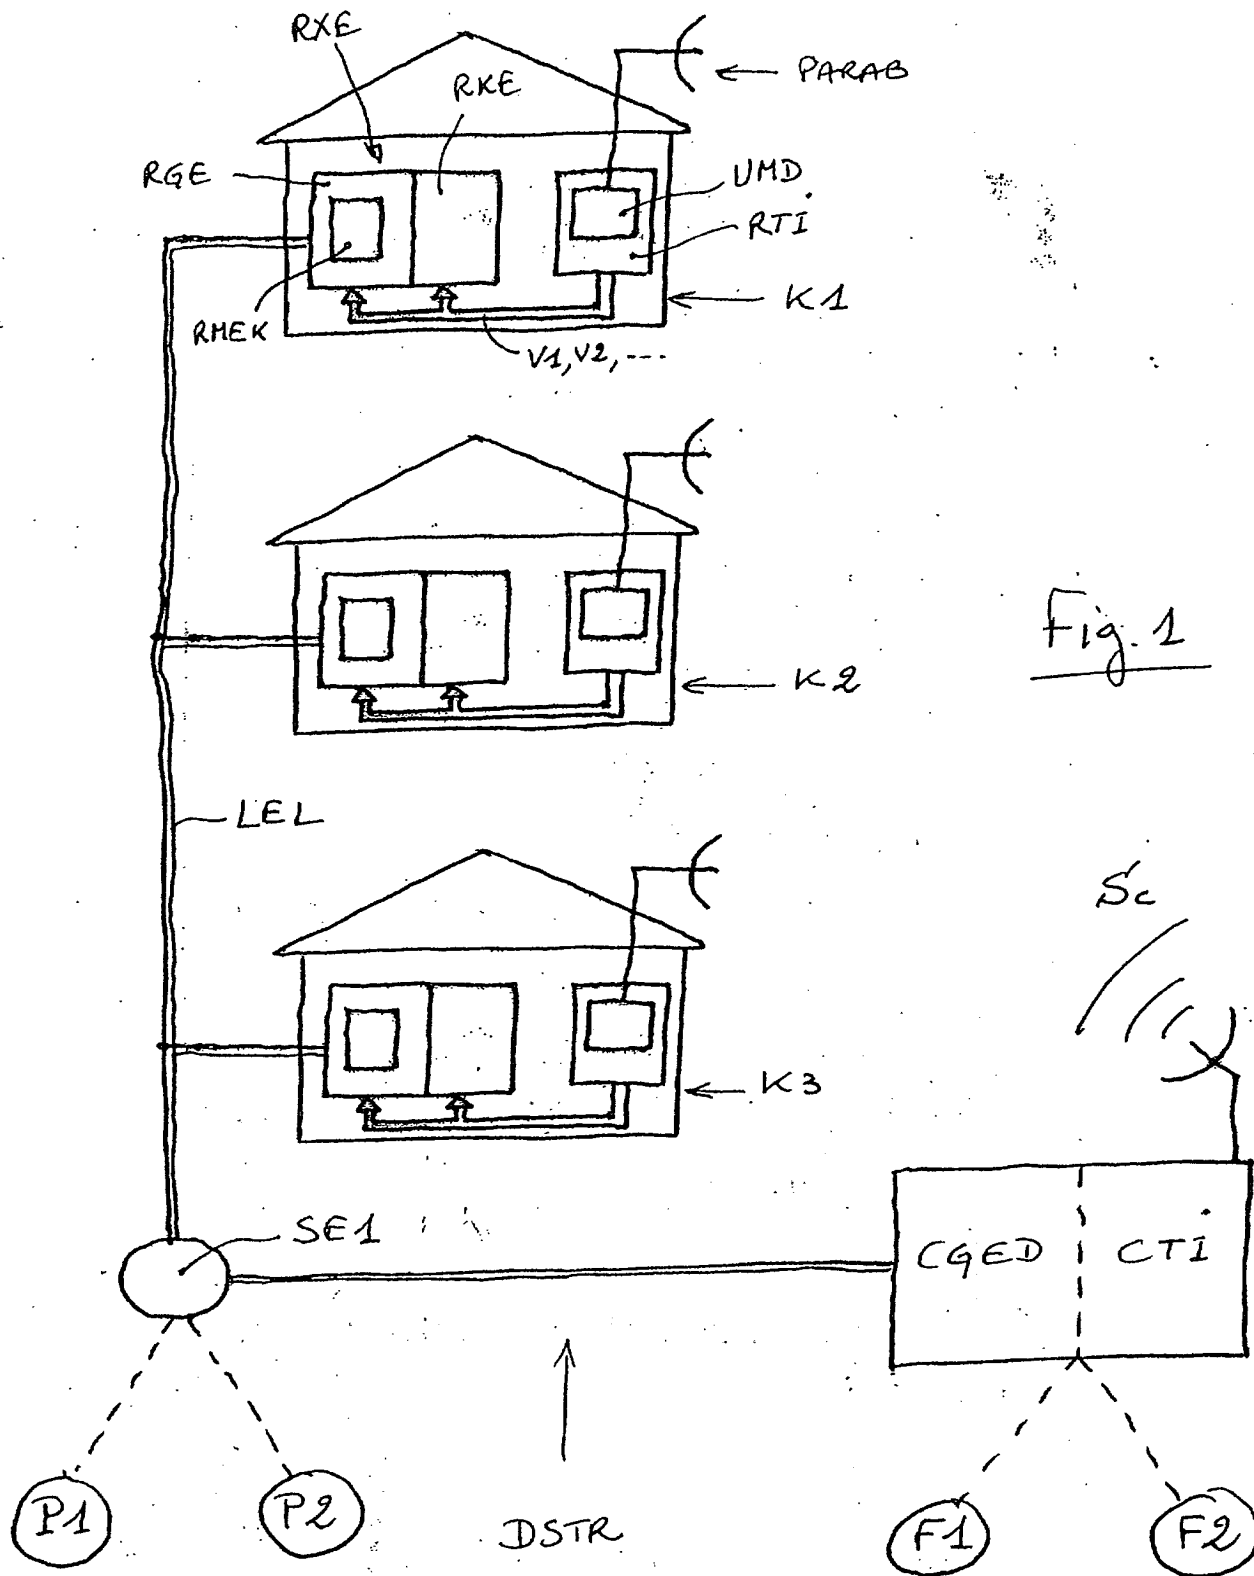 RXE
RKE
PARAB
RGE
UMD
RTI
K1
RMEK
V1, V2, ----
K2
Fig. 1
LEL
Sc
K3
SE1
CGED
CTI
P1
P2
DSTR
F1
F2